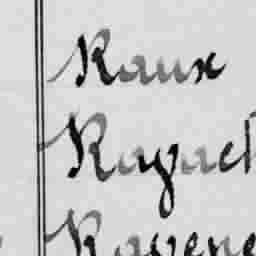 Raux
Rayack
Ravene